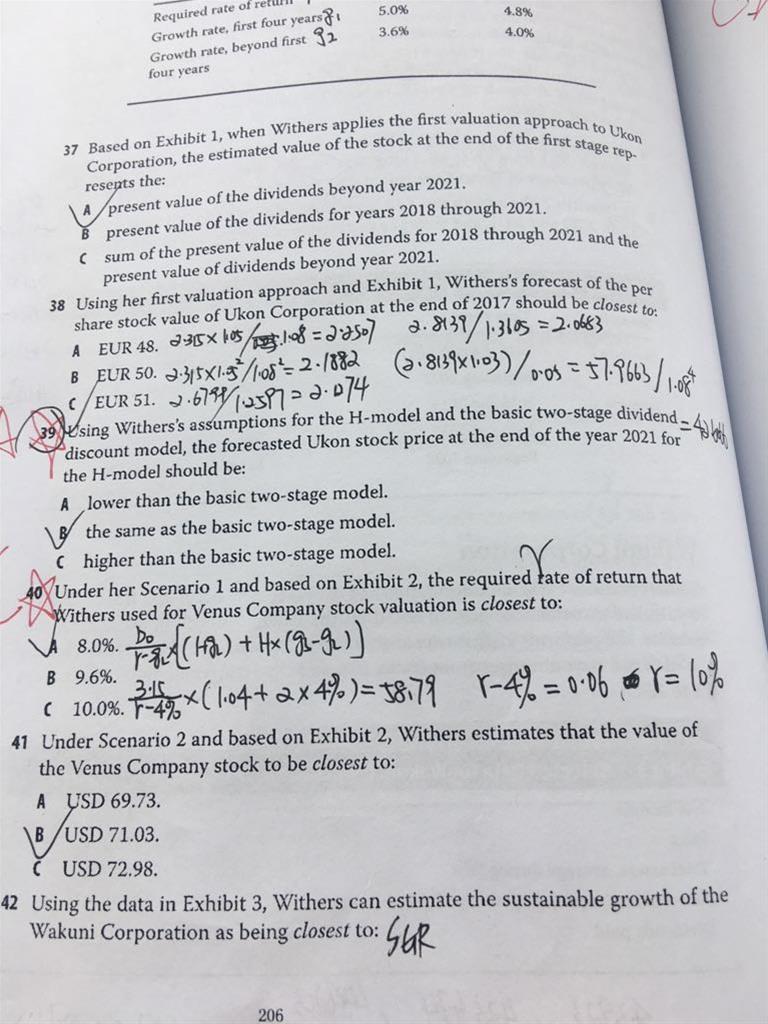 Required rate of return
Growth rate, first four years g1 5.0% 4.8%
Growth rate, beyond first g2 3.6% 4.0%
four years
37 Based on Exhibit 1, when Withers applies the first valuation approach to Ukon
Corporation, the estimated value of the stock at the end of the first stage rep-
resents the:
A present value of the dividends beyond year 2021.
B present value of the dividends for years 2018 through 2021.
C sum of the present value of the dividends for 2018 through 2021 and the
present value of dividends beyond year 2021.
38 Using her first valuation approach and Exhibit 1, Withers's forecast of the per
share stock value of Ukon Corporation at the end of 2017 should be closest to:
A EUR 48. 2.315×1.05/1.08 = 2.2507 2.8139/1.3605 = 2.0683
B EUR 50. 2.315×1.05²/1.08² = 2.1882 (2.8139×1.03)/0.05 = 57.9663/1.08⁴
C EUR 51. 2.6799/1.2597 = 2.074
39 Using Withers's assumptions for the H-model and the basic two-stage dividend
discount model, the forecasted Ukon stock price at the end of the year 2021 for
the H-model should be:
A lower than the basic two-stage model.
B the same as the basic two-stage model.
C higher than the basic two-stage model.
40 Under her Scenario 1 and based on Exhibit 2, the required rate of return that
Withers used for Venus Company stock valuation is closest to:
A 8.0%. D0/r-gL ×[(1+gL) + H×(gs-gL)]
B 9.6%.
C 10.0%. 3.15/r-4% ×(1.04+2×4%) = 58.79 r-4% = 0.06 r = 10%
41 Under Scenario 2 and based on Exhibit 2, Withers estimates that the value of
the Venus Company stock to be closest to:
A USD 69.73.
B USD 71.03.
C USD 72.98.
42 Using the data in Exhibit 3, Withers can estimate the sustainable growth of the
Wakuni Corporation as being closest to: SGR
206